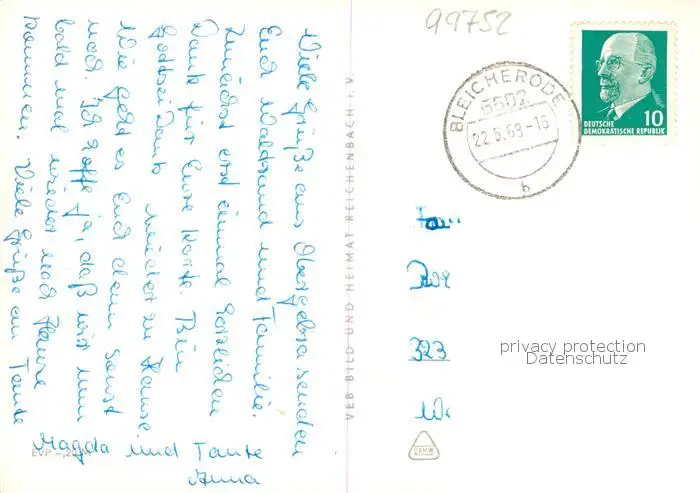 Viele Grüße aus Obergebra senden
Euch Waltraud und Familie.
Zunächst erst einmal herzlichen
Dank für Eure Karte. Bin
Gottseidank wieder zu Hause.
Wie geht es Euch denn sonst
noch. Ich hoffe ja, daß wir nun
bald mal wieder nach Hause
kommen. Viele Grüße an Tante
Magda und Tante
Anna
EVP
VEB BILD UND HEIMAT REICHENBACH i. V.
99752
BLEICHERODE
5502
22.5.69-16
b
DEUTSCHE
DEMOKRATISCHE REPUBLIK
10
Fam
323
privacy protection
Datenschutz
DAMW